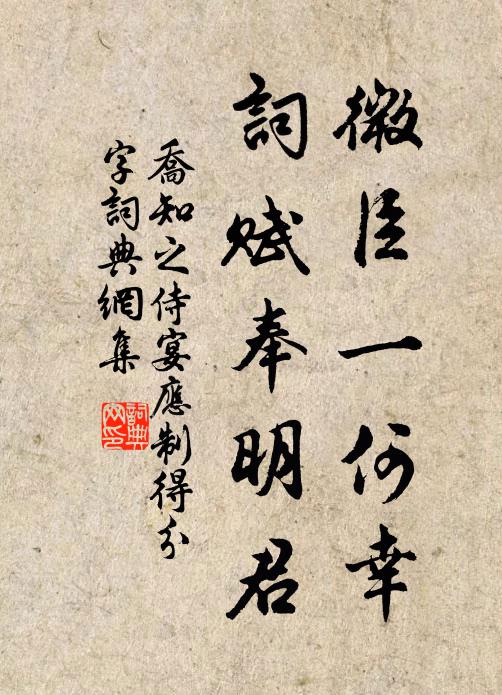 微臣一何幸
詞賦奉明君
喬知之侍宴應制得分
字詞典網集
詞典網印